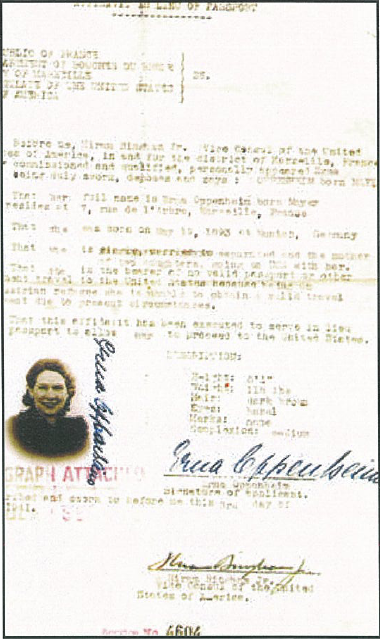 AFFIDAVIT IN LIEU OF PASSPORT
PUBLIC OF FRANCE
OF MARSEILLE
OF THE UNITED STATES
OF AMERICA
SS.
Before me, Hiram Bingham Jr. Vice Consul of the United
of America, in and for the district of Marseille, France
commissioned and qualified, personally appeared Erna
being duly sworn, deposes and says : OPPENHEIM born MAYER
That her full name is Erna Oppenheim born Mayer
resides at 7, rue de Marseille, France
That she was born on May 1893 at Germany
That she is separated and the mother
of two going to USA with her.
That she is the bearer of no valid passport or other
travel to the United States because being an
she is unable to obtain a valid travel
due to present circumstances.
That this affidavit has been executed to serve in lieu
passport to allow to proceed to the United States.
DESCRIPTION:
Height: 5'1"
Weight: 112 lbs
Hair: dark brown
Eyes: hazel
Marks: none
Complexion: medium
Erna Oppenheim
Erna Oppenheim
GRAPH ATTACHED
Erna Oppenheim
Signature of applicant.
and sworn to before me this 3rd day of
1941.
Hiram Bingham Jr.
Hiram Bingham Jr.
Vice Consul of the United
States of America.
Service No.